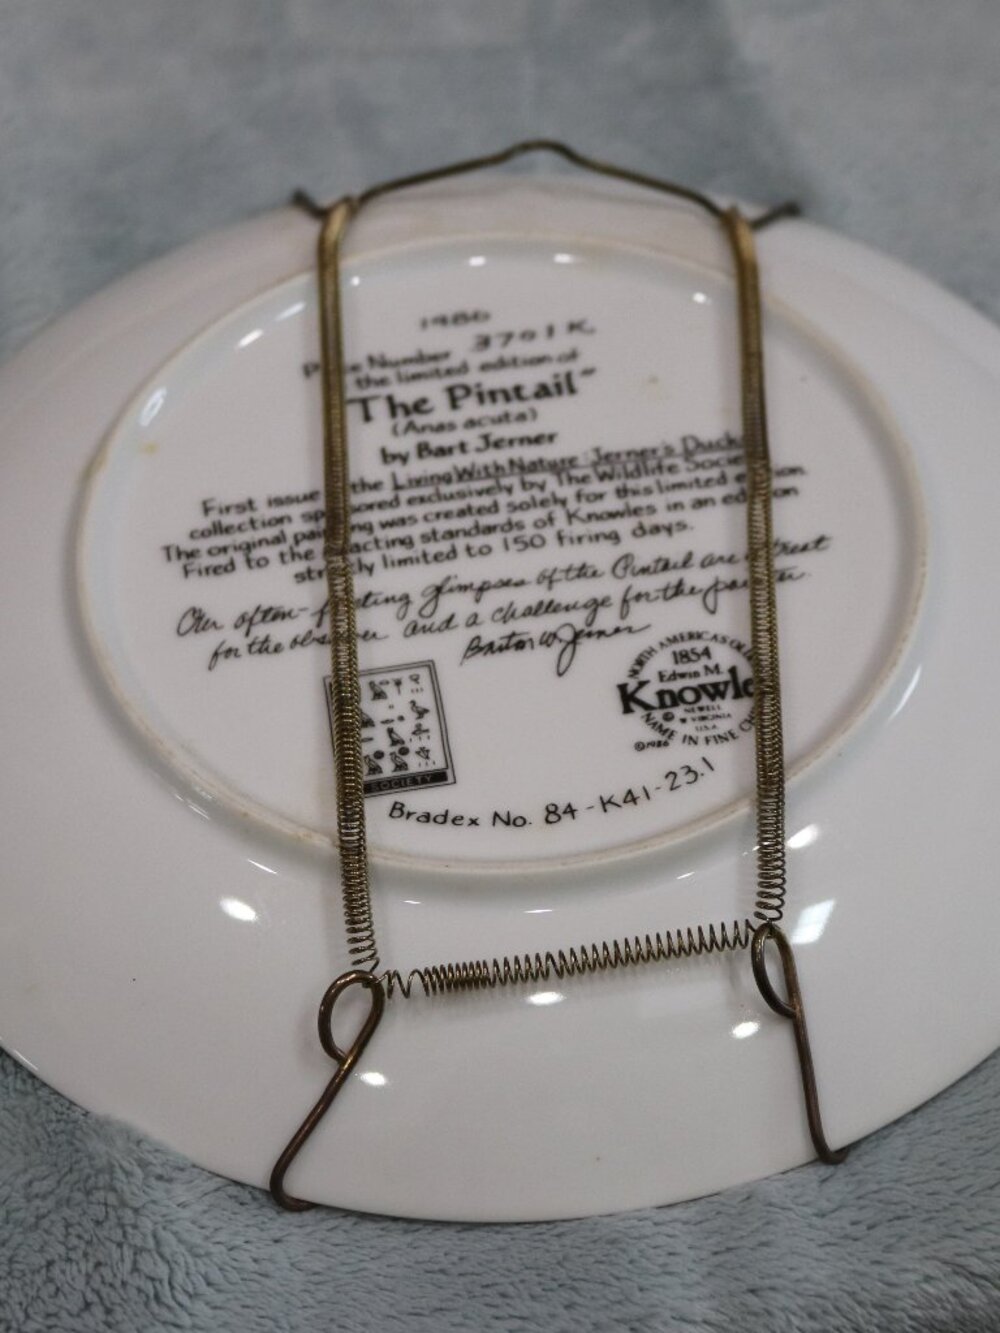 1986
Plate Number 3701K
the limited edition of
"The Pintail"
(Anas acuta)
by Bart Jerner
First issue the Living With Nature: Jerner's Ducks
collection sponsored exclusively by The Wildlife Society
The original painting was created solely for this limited edition
Fired to the exacting standards of Knowles in an edition
strictly limited to 150 firing days.
Our often-fleeting glimpses of the Pintail are a treat
for the observer and a challenge for the painter.
Barton W. Jerner
SOCIETY
NORTH AMERICA'S OLDEST
1854
Edwin M.
Knowles
NEWELL
W VIRGINIA
U.S.A.
NAME IN FINE CHINA
©1986
Bradex No. 84-K41-23.1